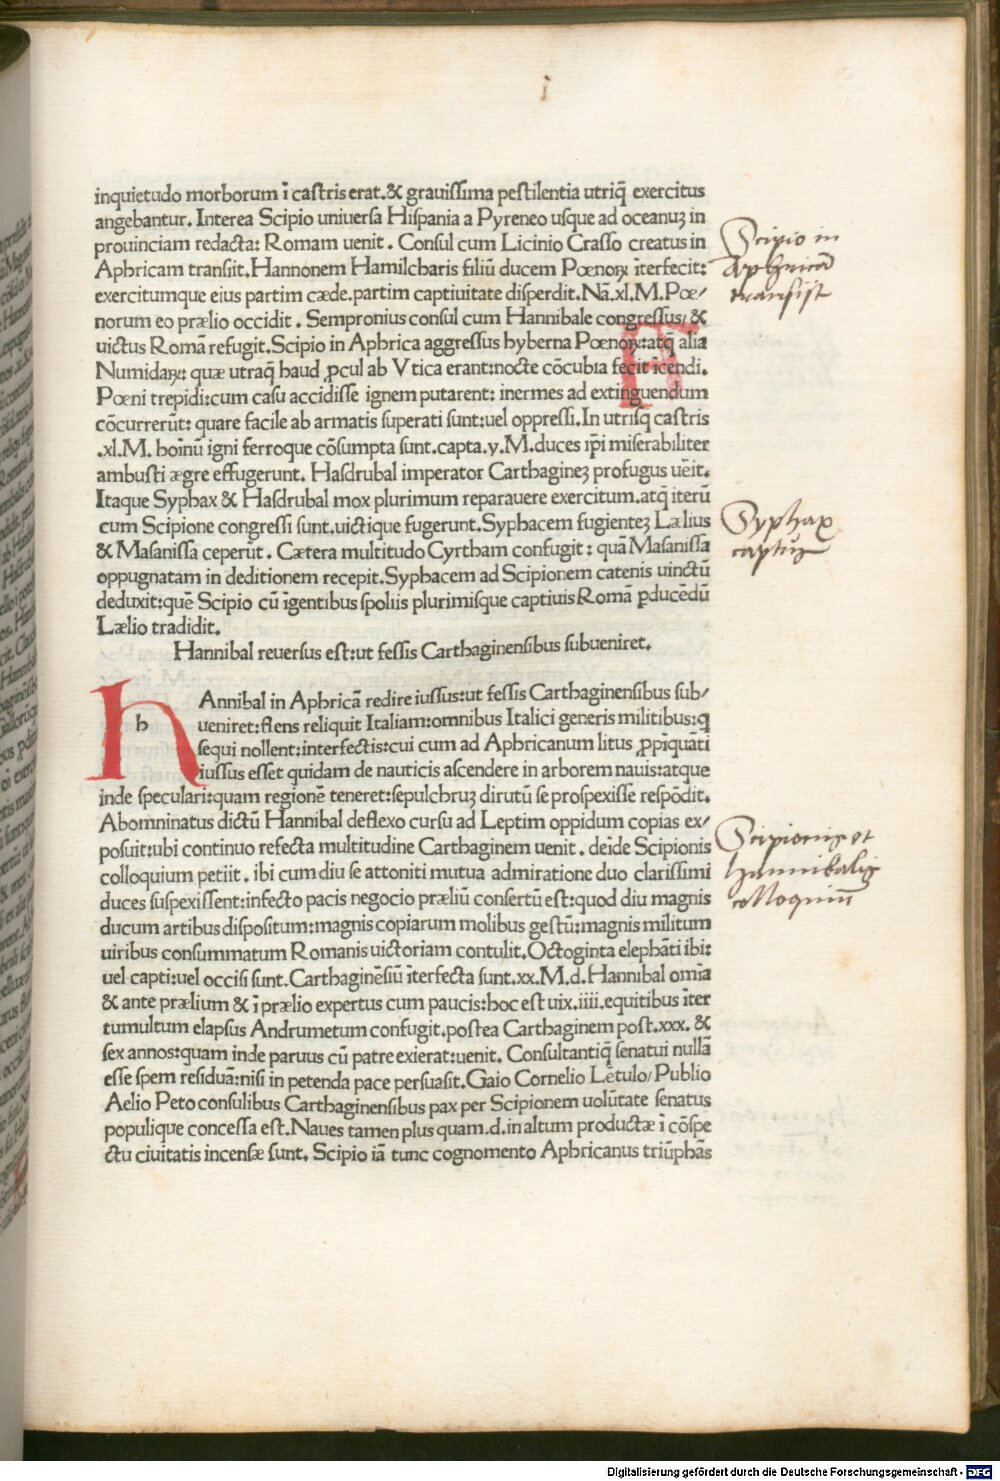 i
inquietudo morborum ī castris erat. & grauissima pestilentia utriq̄ exercitus
angebantur. Interea Scipio uniuersa Hispania a Pyreneo usque ad oceanuꝫ in
prouinciam redacta: Romam uenit. Consul cum Licinio Crasso creatus in
Aphricam transiit. Hannonem Hamilcharis filiū ducem Pœnoꝝ īterfecit:
exercitumque eius partim cæde. partim captiuitate disperdit. Nā .xl. M. Pœ/
norum eo prælio occidit. Sempronius consul cum Hannibale congressus/ &
uictus Romā refugit. Scipio in Aphrica aggressus hyberna Pœnoꝝ: atq̄ alia
Numidaꝝ: quæ utraq̄ haud ꝓcul ab Vtica erant: nocte cōcubia fecit īcendi.
Pœni trepidi: cum casu accidisse ignem putarent: inermes ad extinguendum
cōcurrerūt: quare facile ab armatis superati sunt: uel oppressi. In utrisq̄ castris
.xl. M. hoinū igni ferroque cōsumpta sunt. capta .y. M. duces ip̄i miserabiliter
ambusti ægre effugerunt. Hasdrubal imperator Carthagineꝫ profugus uēit.
Itaque Syphax & Hasdrubal mox plurimum reparauere exercitum. atq̄ iterū
cum Scipione congressi sunt. uictique fugerunt. Syphacem fugienteꝫ Lælius
& Masanissa ceperūt. Cætera multitudo Cyrtham confugit: quā Masanissa
oppugnatam in deditionem recepit. Syphacem ad Scipionem catenis uinctū
deduxit: quē Scipio cū īgentibus spoliis plurimisque captiuis Romā ꝑducēdū
Lælio tradidit.
Hannibal reuersus est: ut fessis Carthaginensibus subueniret.
h h Annibal in Aphricā redire iussus: ut fessis Carthaginensibus sub/
ueniret: flens reliquit Italiam: omnibus Italici generis militibus: q
sequi nollent: interfectis: cui cum ad Aphricanum litus ꝓpīquāti
iussus esset quidam de nauticis ascendere in arborem nauis: atque
inde speculari: quam regionē teneret: sepulchruꝫ dirutū se prospexisse respōdit.
Abominatus dictū Hannibal deflexo cursu ad Leptim oppidum copias ex/
posuit: ubi continuo refecta multitudine Carthaginem uenit. deide Scipionis
colloquium petiit. ibi cum diu se attoniti mutua admiratione duo clarissimi
duces suspexissent: infecto pacis negocio præliū consertū est: quod diu magnis
ducum artibus dispositum: magnis copiarum molibus gestū: magnis militum
uiribus consummatum Romanis uictoriam contulit. Octoginta elephāti ibi:
uel capti: uel occisi sunt. Carthaginēsiū īterfecta sunt .xx. M. d. Hannibal omīa
& ante prælium & ī prælio expertus cum paucis: hoc est uix .iiii. equitibus īter
tumultum elapsus Andrumetum confugit. postea Carthaginem post .xxx. &
sex annos: quam inde paruus cū patre exierat: uenit. Consultantiq̄ senatui nullā
esse spem residuā: nisi in petenda pace persuasit. Gaio Cornelio Lētulo/ Publio
Aelio Peto consulibus Carthaginensibus pax per Scipionem uolūtate senatus
populique concessa est. Naues tamen plus quam .d. in altum productæ ī cōspe
ctu ciuitatis incensæ sunt. Scipio iā tunc cognomento Aphricanus triūphās
Scipio in
Aphricā
transijt
Syphax
captus
Scipionis et
Hannibalis
colloquiū
Digitalisierung gefördert durch die Deutsche Forschungsgemeinschaft - DFG